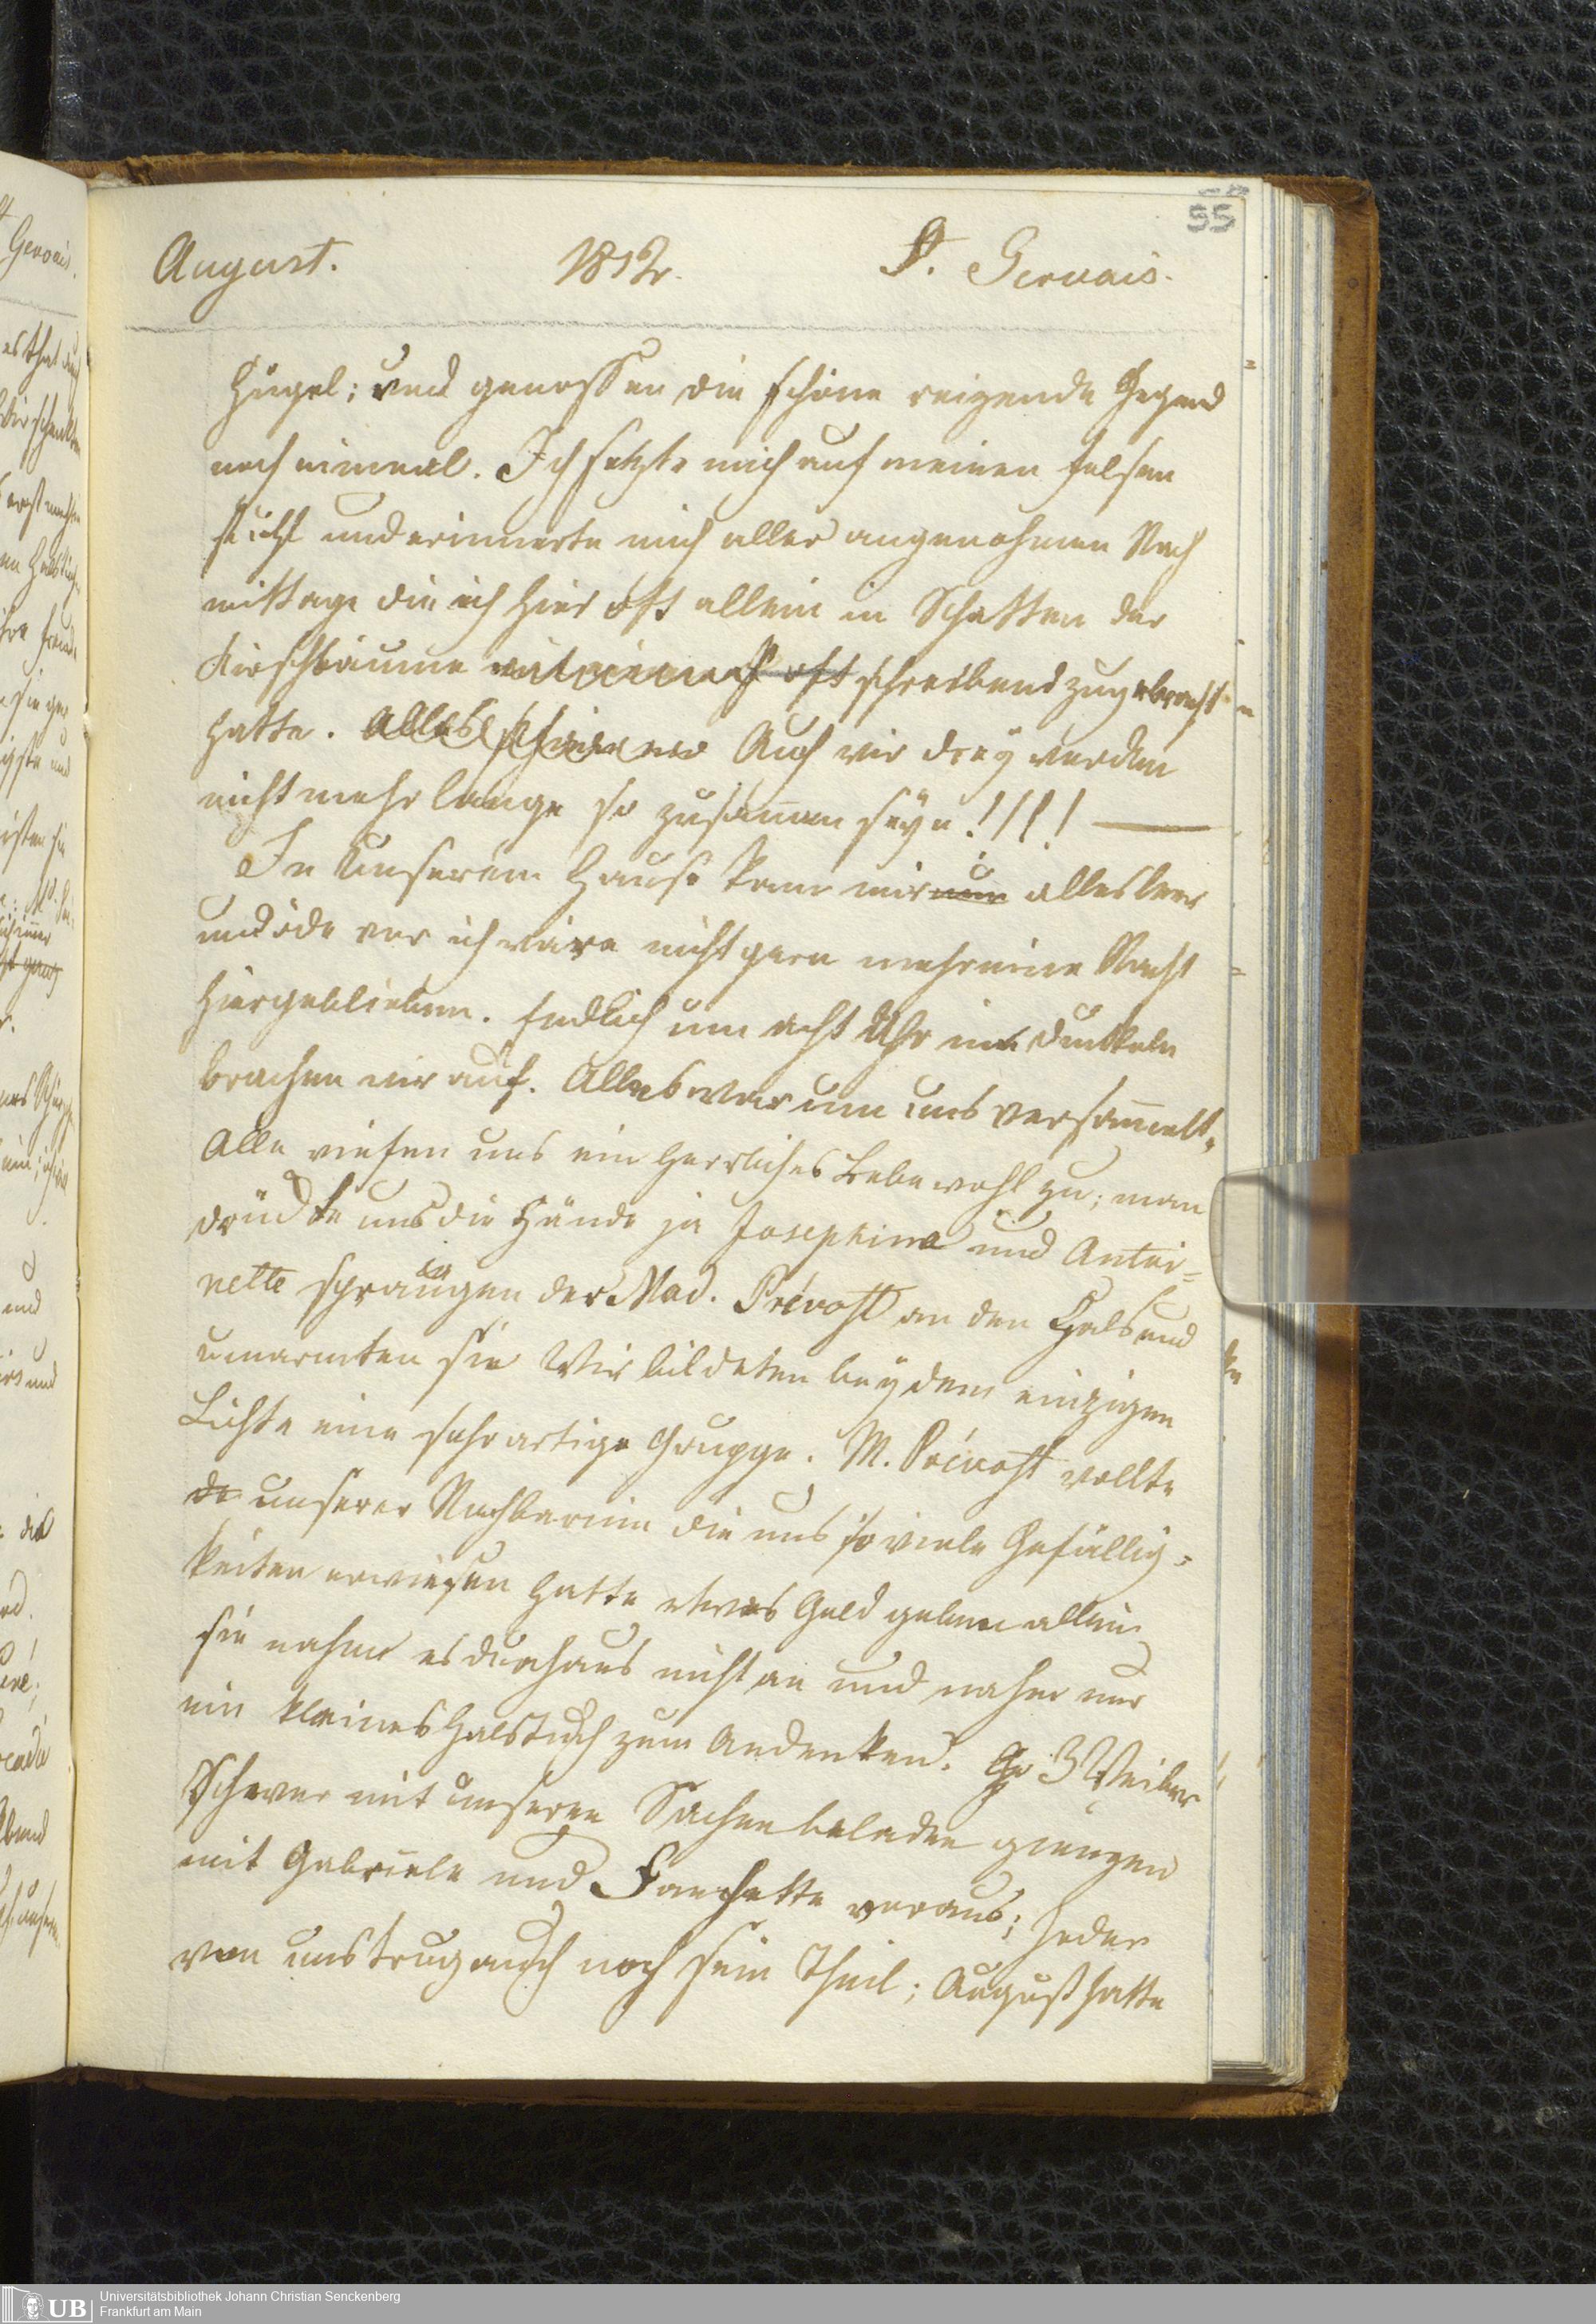 55
August. 1812. St. Gervais.
Hügel; und genossen die schöne reizende Gegend
noch einmal. Ich setzte mich auf meinen Felsen
sitz und erinnerte mich aller angenehmen Nach
mittage die ich hier oft allein in Schatten der
Kirschbäume oft schreibend zugebracht
hatte. Alles schien Auch wir drey werden
nicht mehr lange so zusam̄en seyn!!!! —
In Unserem Hause kam mir nun alles leer
und öde vor ich wäre nicht gern mehr eine Nacht
hiergeblieben. Endlich um acht Uhr im Dunkeln
brachen wir auf. Alles war um uns versam̄elt,
Alle riefen uns ein herzliches Lebewohl zu; man
drückte uns die Hände ja Josephine und Antoi=
nette sprangen der Mad. Prévost an den Hals und
umarmten sie Wir bildeten bey dem einzigen
Lichte eine sehr artige Gruppe. M. Prévost wollte
de unserer Nachbarinn die uns so viele Gefällig=
keiten erwiesen hatte etwas Geld geben allein
sie nahm es durchaus nicht an und nahm nur
ein kleines Halstuch zum Andenken. 3 Weiber
schwer mit unseren Sachen beladen giengen
mit Gabriele und Fanchette voraus; Jeder
von uns trug auch noch sein Theil; August hatte
UB Universitätsbibliothek Johann Christian Senckenberg
Frankfurt am Main